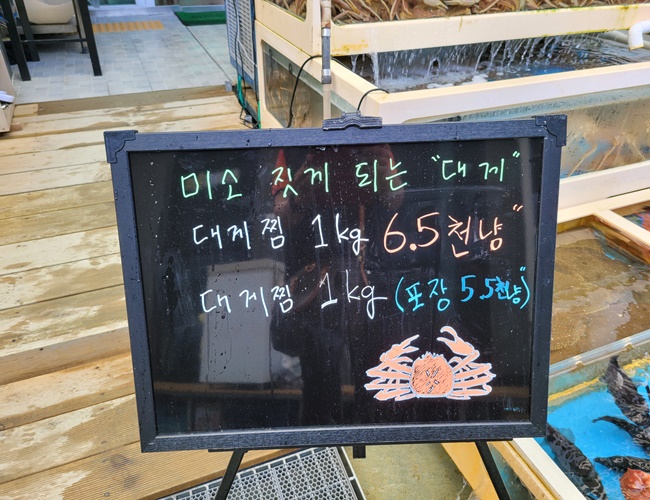 미소 짓게 되는 "대게"
대게찜 1kg 6.5천냥"
대게찜 1kg (포장 5.5천냥")